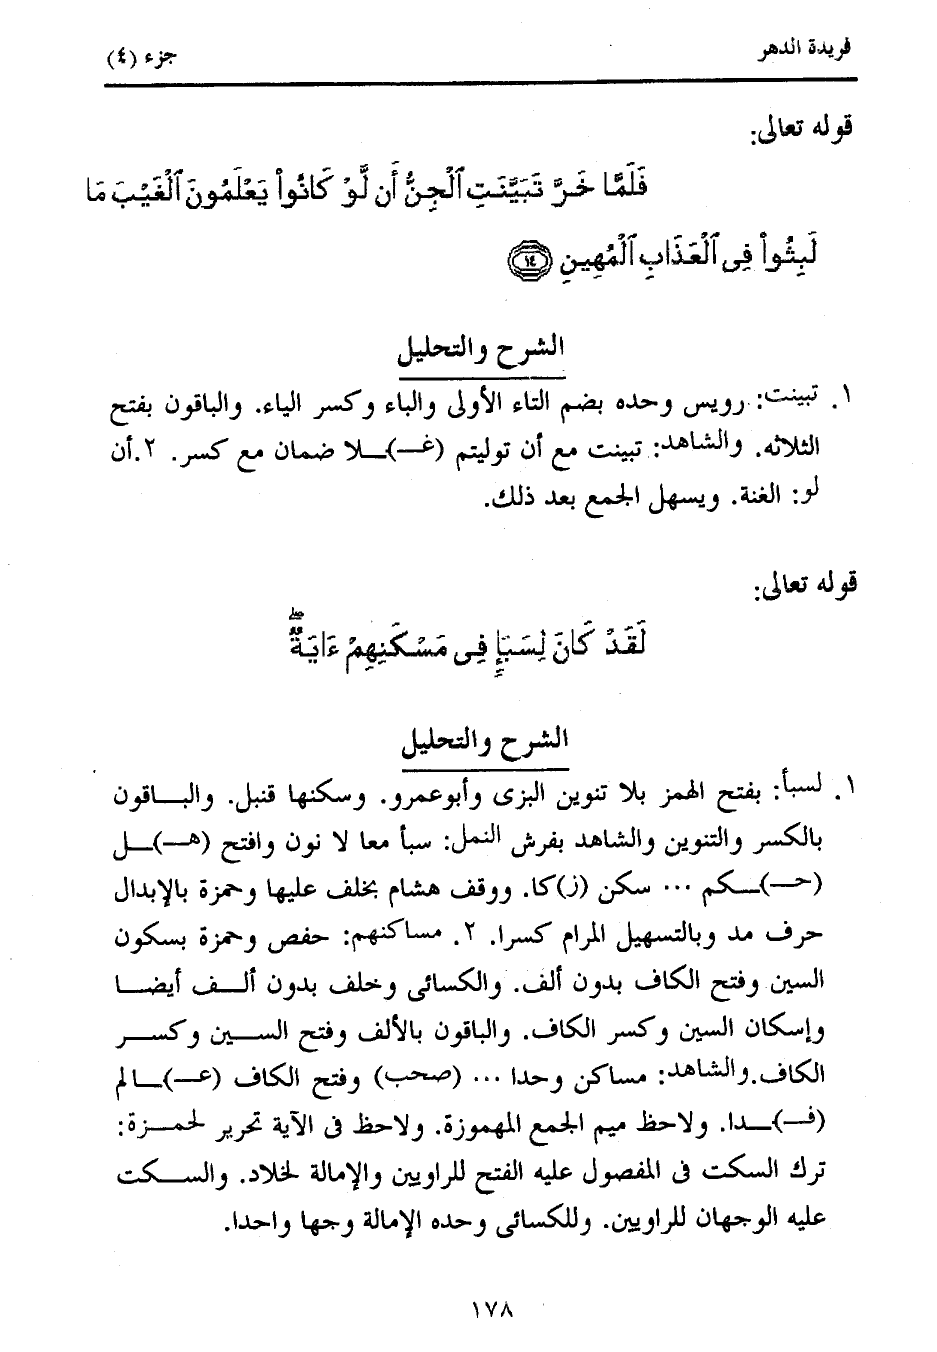 فريدة الدهر
جزء (٤)
قوله تعالى:
فَلَمَّا خَرَّ تَبَيَّنَتِ ٱلْجِنُّ أَن لَّوْ كَانُوا۟ يَعْلَمُونَ ٱلْغَيْبَ مَا
لَبِثُوا۟ فِى ٱلْعَذَابِ ٱلْمُهِينِ ١٤
الشرح والتحليل
١. تبينت: رويس وحده بضم التاء الأولى والباء وكسر الياء. والباقون بفتح
الثلاثه. والشاهد: تبينت مع أن توليتم (غـ)ـلا ضمان مع كسر. ٢.أن
لو: الغنة. ويسهل الجمع بعد ذلك.
قوله تعالى:
لَقَدْ كَانَ لِسَبَإٍ فِى مَسْكَنِهِمْ ءَايَةٌ ۖ
الشرح والتحليل
١. لسبأ: بفتح الهمز بلا تنوين البزى وأبوعمرو. وسكنها قنبل. والباقون
بالكسر والتنوين والشاهد بفرش النمل: سبأ معا لا نون وافتح (هـ)ـل
(حـ)ـكم ... سكن (ز)كا. ووقف هشام بخلف عليها وحمزة بالإبدال
حرف مد وبالتسهيل المرام كسرا. ٢. مساكنهم: حفص وحمزة بسكون
السين وفتح الكاف بدون ألف. والكسائى وخلف بدون ألف أيضا
وإسكان السين وكسر الكاف. والباقون بالألف وفتح السين وكسر
الكاف.والشاهد: مساكن وحدا ... (صحب) وفتح الكاف (عـ)ـالم
(فـ)ـدا. ولاحظ ميم الجمع المهموزة. ولاحظ فى الآية تحرير لحمزة:
ترك السكت فى المفصول عليه الفتح للراويين والإمالة لخلاد. والسكت
عليه الوجهان للراويين. وللكسائى وحده الإمالة وجها واحدا.
١٧٨